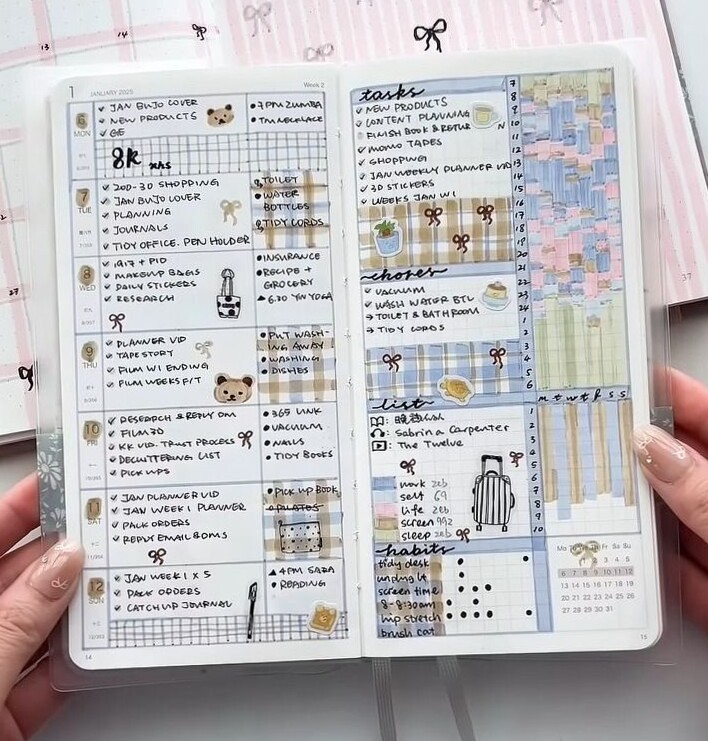 13
14
27
37
1 JANUARY 2025 Week 2
6 MON
✓ JAN BUJO COVER
✓ NEW PRODUCTS
✓ GE
• 7PM ZUMBA
• TM NECKLACE
8K xhs
7 TUE
✓ 200-30 SHOPPING
✓ JAN BUJO COVER
✓ PLANNING
✓ JOURNALS
✓ TIDY OFFICE. PEN HOLDER
TOILET
• WATER
BOTTLES
TIDY CORDS
8 WED
✓ 1917 + PID
✓ MAKEUP BAGS
✓ DAILY STICKERS
✓ RESEARCH
• INSURANCE
• RECIPE +
GROCERY
▲ 6.30 YIN YOGA
9 THU
✓ PLANNER VID
✓ TAPE STORY
✓ FILM W1 ENDING
✓ FILM WEEKS F/T
• PUT WASH-
ING AWAY
• WASHING
• DISHES
10 FRI
✓ RESEARCH & REPLY DM
✓ FILM 3D
✓ KK VID. TRUST PROCESS
✓ DECLUTTERING LIST
✓ PICK UPS
• 365 LINK
• VACUUM
• NAILS
• TIDY BOOKS
11 SAT
✓ JAN PLANNER VID
✓ JAN WEEK 1 PLANNER
✓ PACK ORDERS
✓ REPLY EMAIL & DMS
• PICK UP BOOK
• PILATES
12 SUN
✓ JAN WEEK 1 X 5
✓ PACK ORDERS
✓ CATCH UP JOURNAL
▲ 4PM SARA
• READING
14
tasks
✓ NEW PRODUCTS
✓ CONTENT PLANNING
FINISH BOOK & RETURN
✓ MOMO TAPES
✓ SHOPPING
✓ JAN WEEKLY PLANNER VID
✓ 3D STICKERS
✓ WEEKS JAN W1
chores
✓ VACUUM
✓ WASH WATER BTL
→ TOILET & BATHROOM
→ TIDY CORDS
list
: Sabrina Carpenter
: The Twelve
work zeb
self 69
life zeb
screen 992
sleep zeb
habits
tidy desk
undng lt
screen time
8-8:30am
hip stretch
brush cat
7
8
9
10
11
12
13
14
15
16
17
18
19
20
21
22
23
24
1
2
3
4
5
6
M t w t f s s
1
2
3
4
5
6
7
8
9
10
Mo Tu We Th Fr Sa Su
1 2 3 4 5
6 7 8 9 10 11 12
13 14 15 16 17 18 19
20 21 22 23 24 25 26
27 28 29 30 31
15